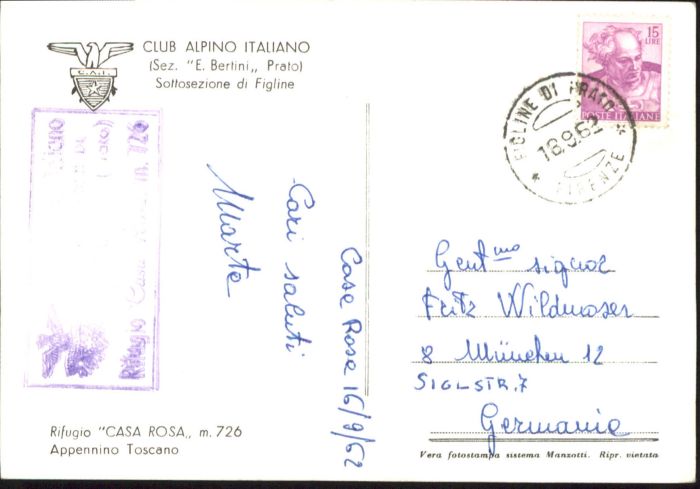 CLUB ALPINO ITALIANO
(Sez. "E. Bertini„ Prato)
Sottosezione di Figline
C.A.I.
Rifugio Casa Rosa m. 726
15
LIRE
POSTE ITALIANE
FIGLINE DI PRATO
18.9.62
* FIRENZE *
Case Rose 16/9/62
Cari saluti
Marta
Gent.mo signor
Fritz Wildmoser
8 München 12
SIGLSTR. 7
Germania
Rifugio "CASA ROSA„ m. 726
Appennino Toscano
Vera fotostampa sistema Manzotti. Ripr. vietata